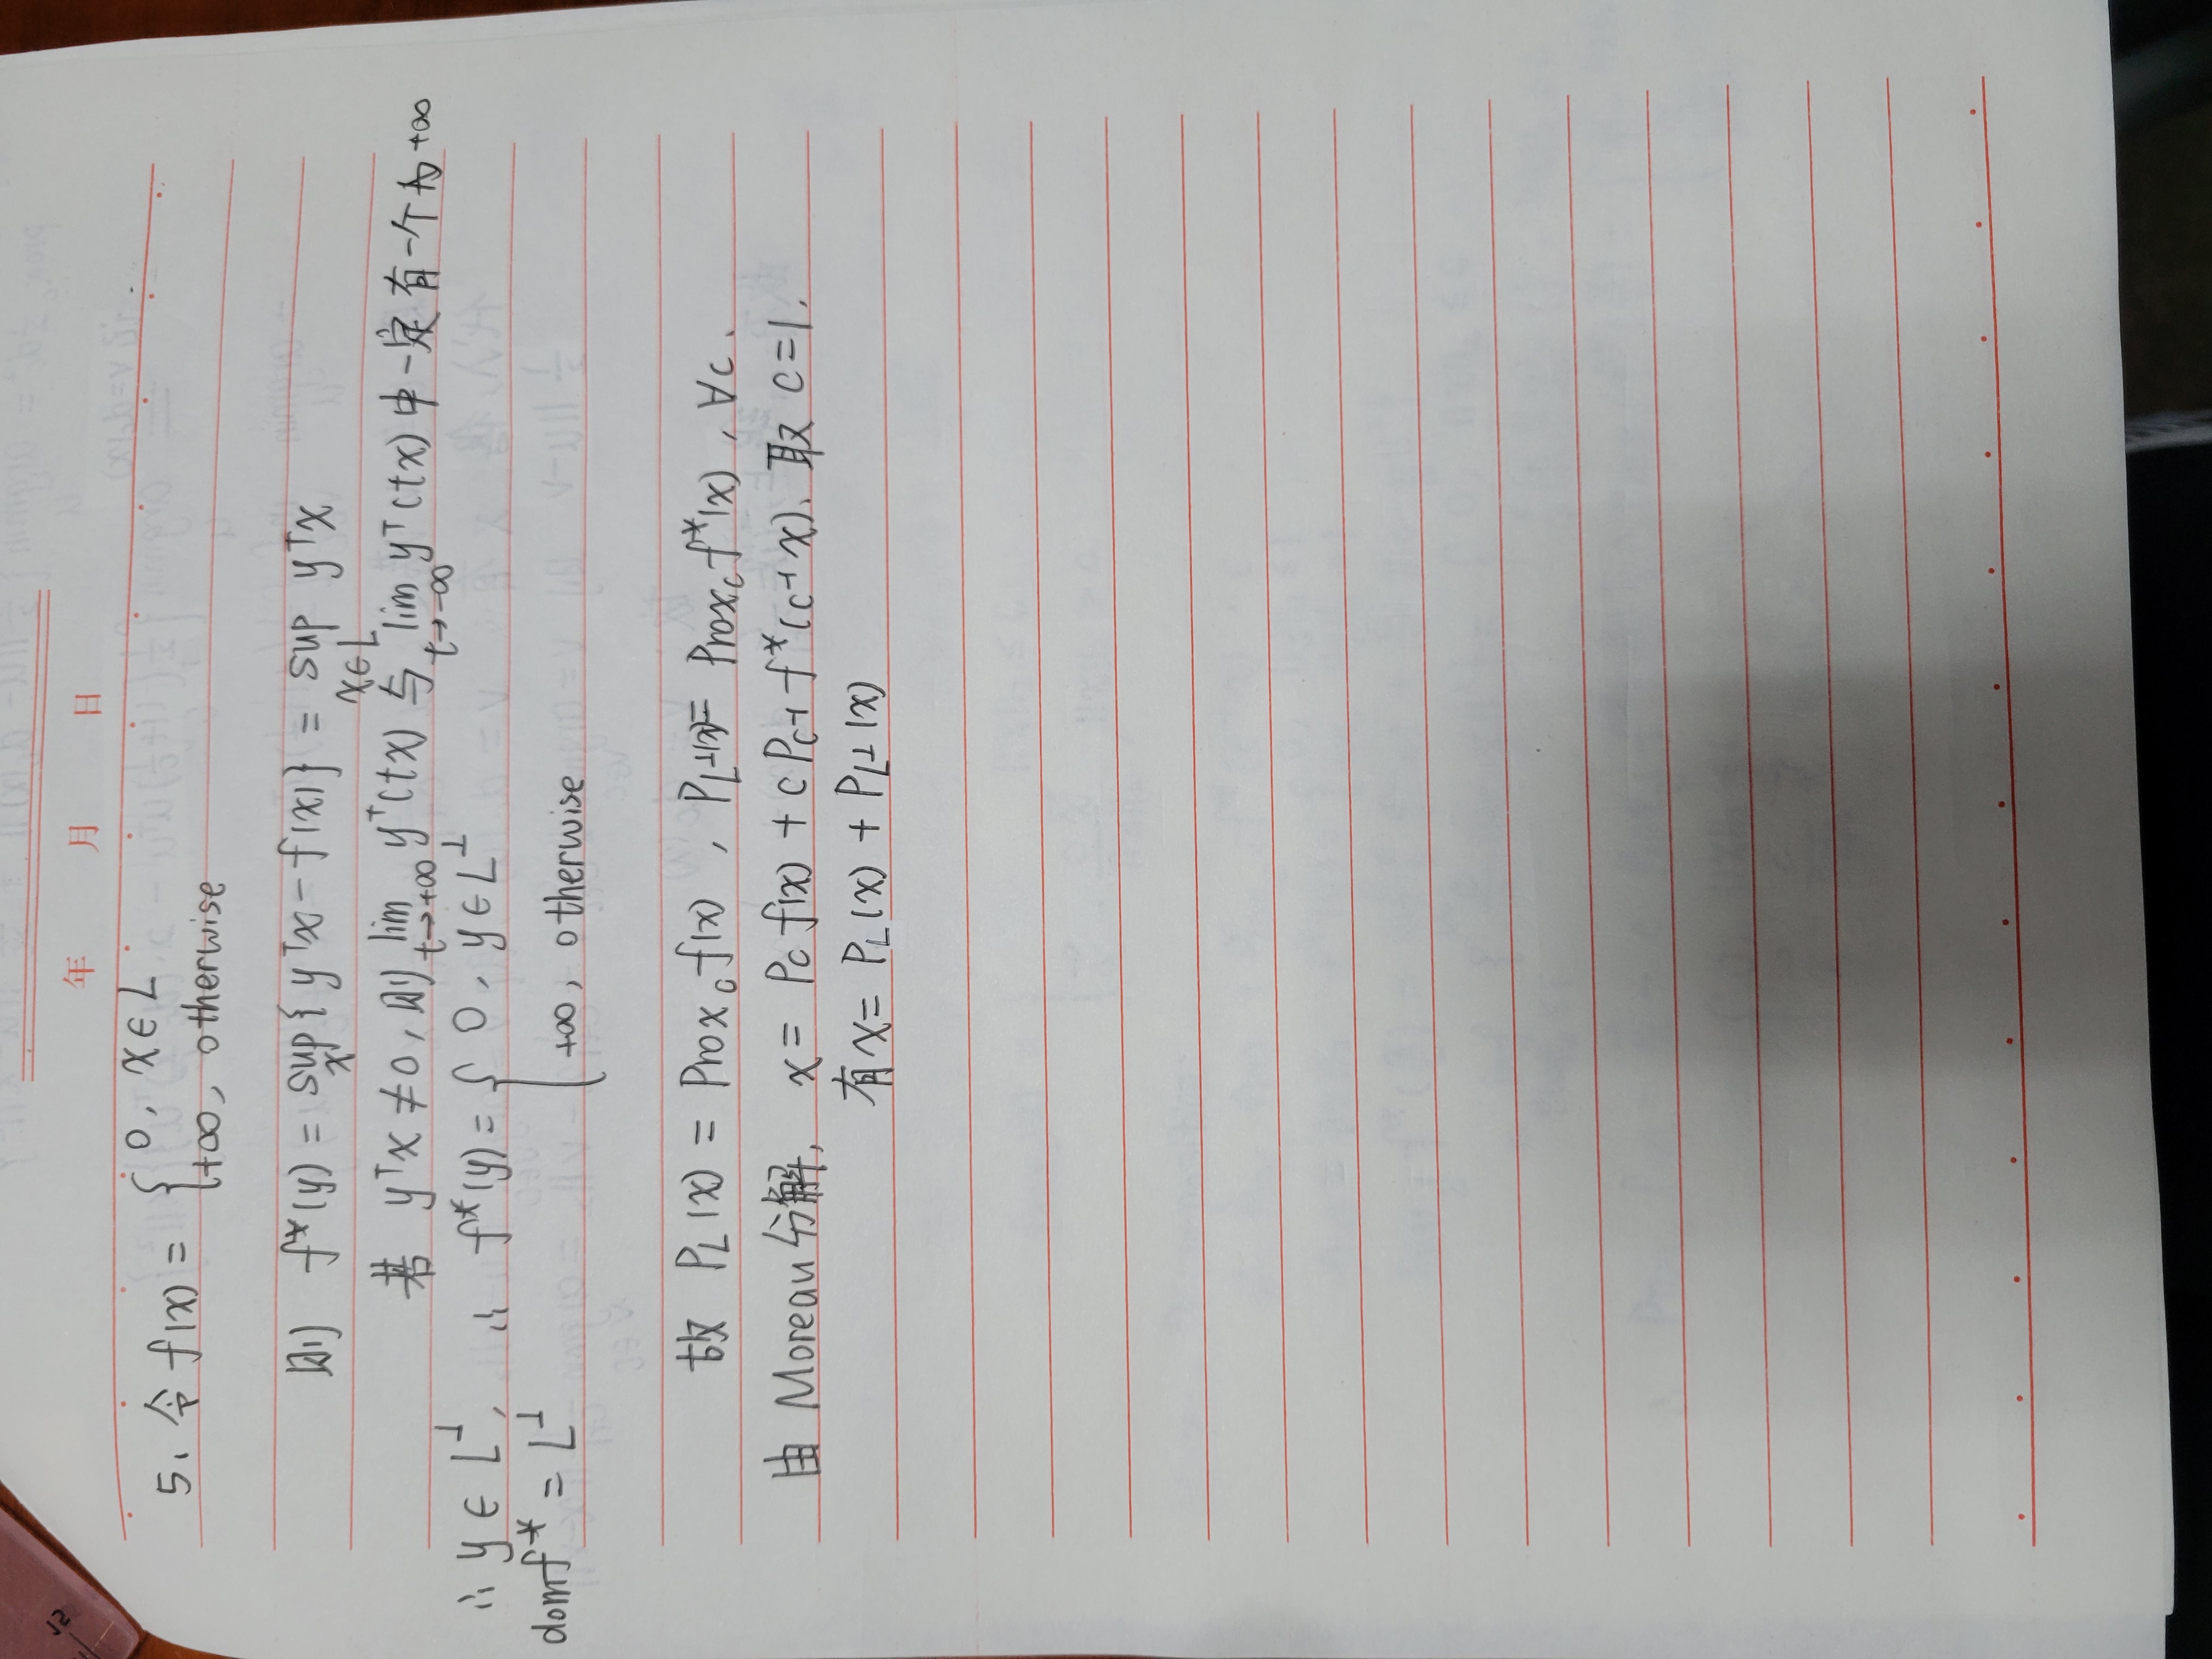 年 月 日
5、令 f(x) = { 0, x∈L
+∞, otherwise
则 f*(y) = sup{ yᵀx - f(x)} = sup yᵀx
x x∈L
若 yᵀx ≠ 0, 则 lim yᵀ(tx) 与 lim yᵀ(tx) 中一定有一个为 +∞
t→+∞ t→-∞
∴ y∈L⊥, ∴ f*(y) = { 0, y∈L⊥
domf* = L⊥ +∞, otherwise
故 P_L(x) = Prox_c f(x), P_L⊥(x) = Prox_c f*(x), ∀c.
由 Moreau 分解, x = P_c f(x) + c P_c⁻¹ f*(c⁻¹x). 取 c=1.
有 x = P_L(x) + P_L⊥(x)